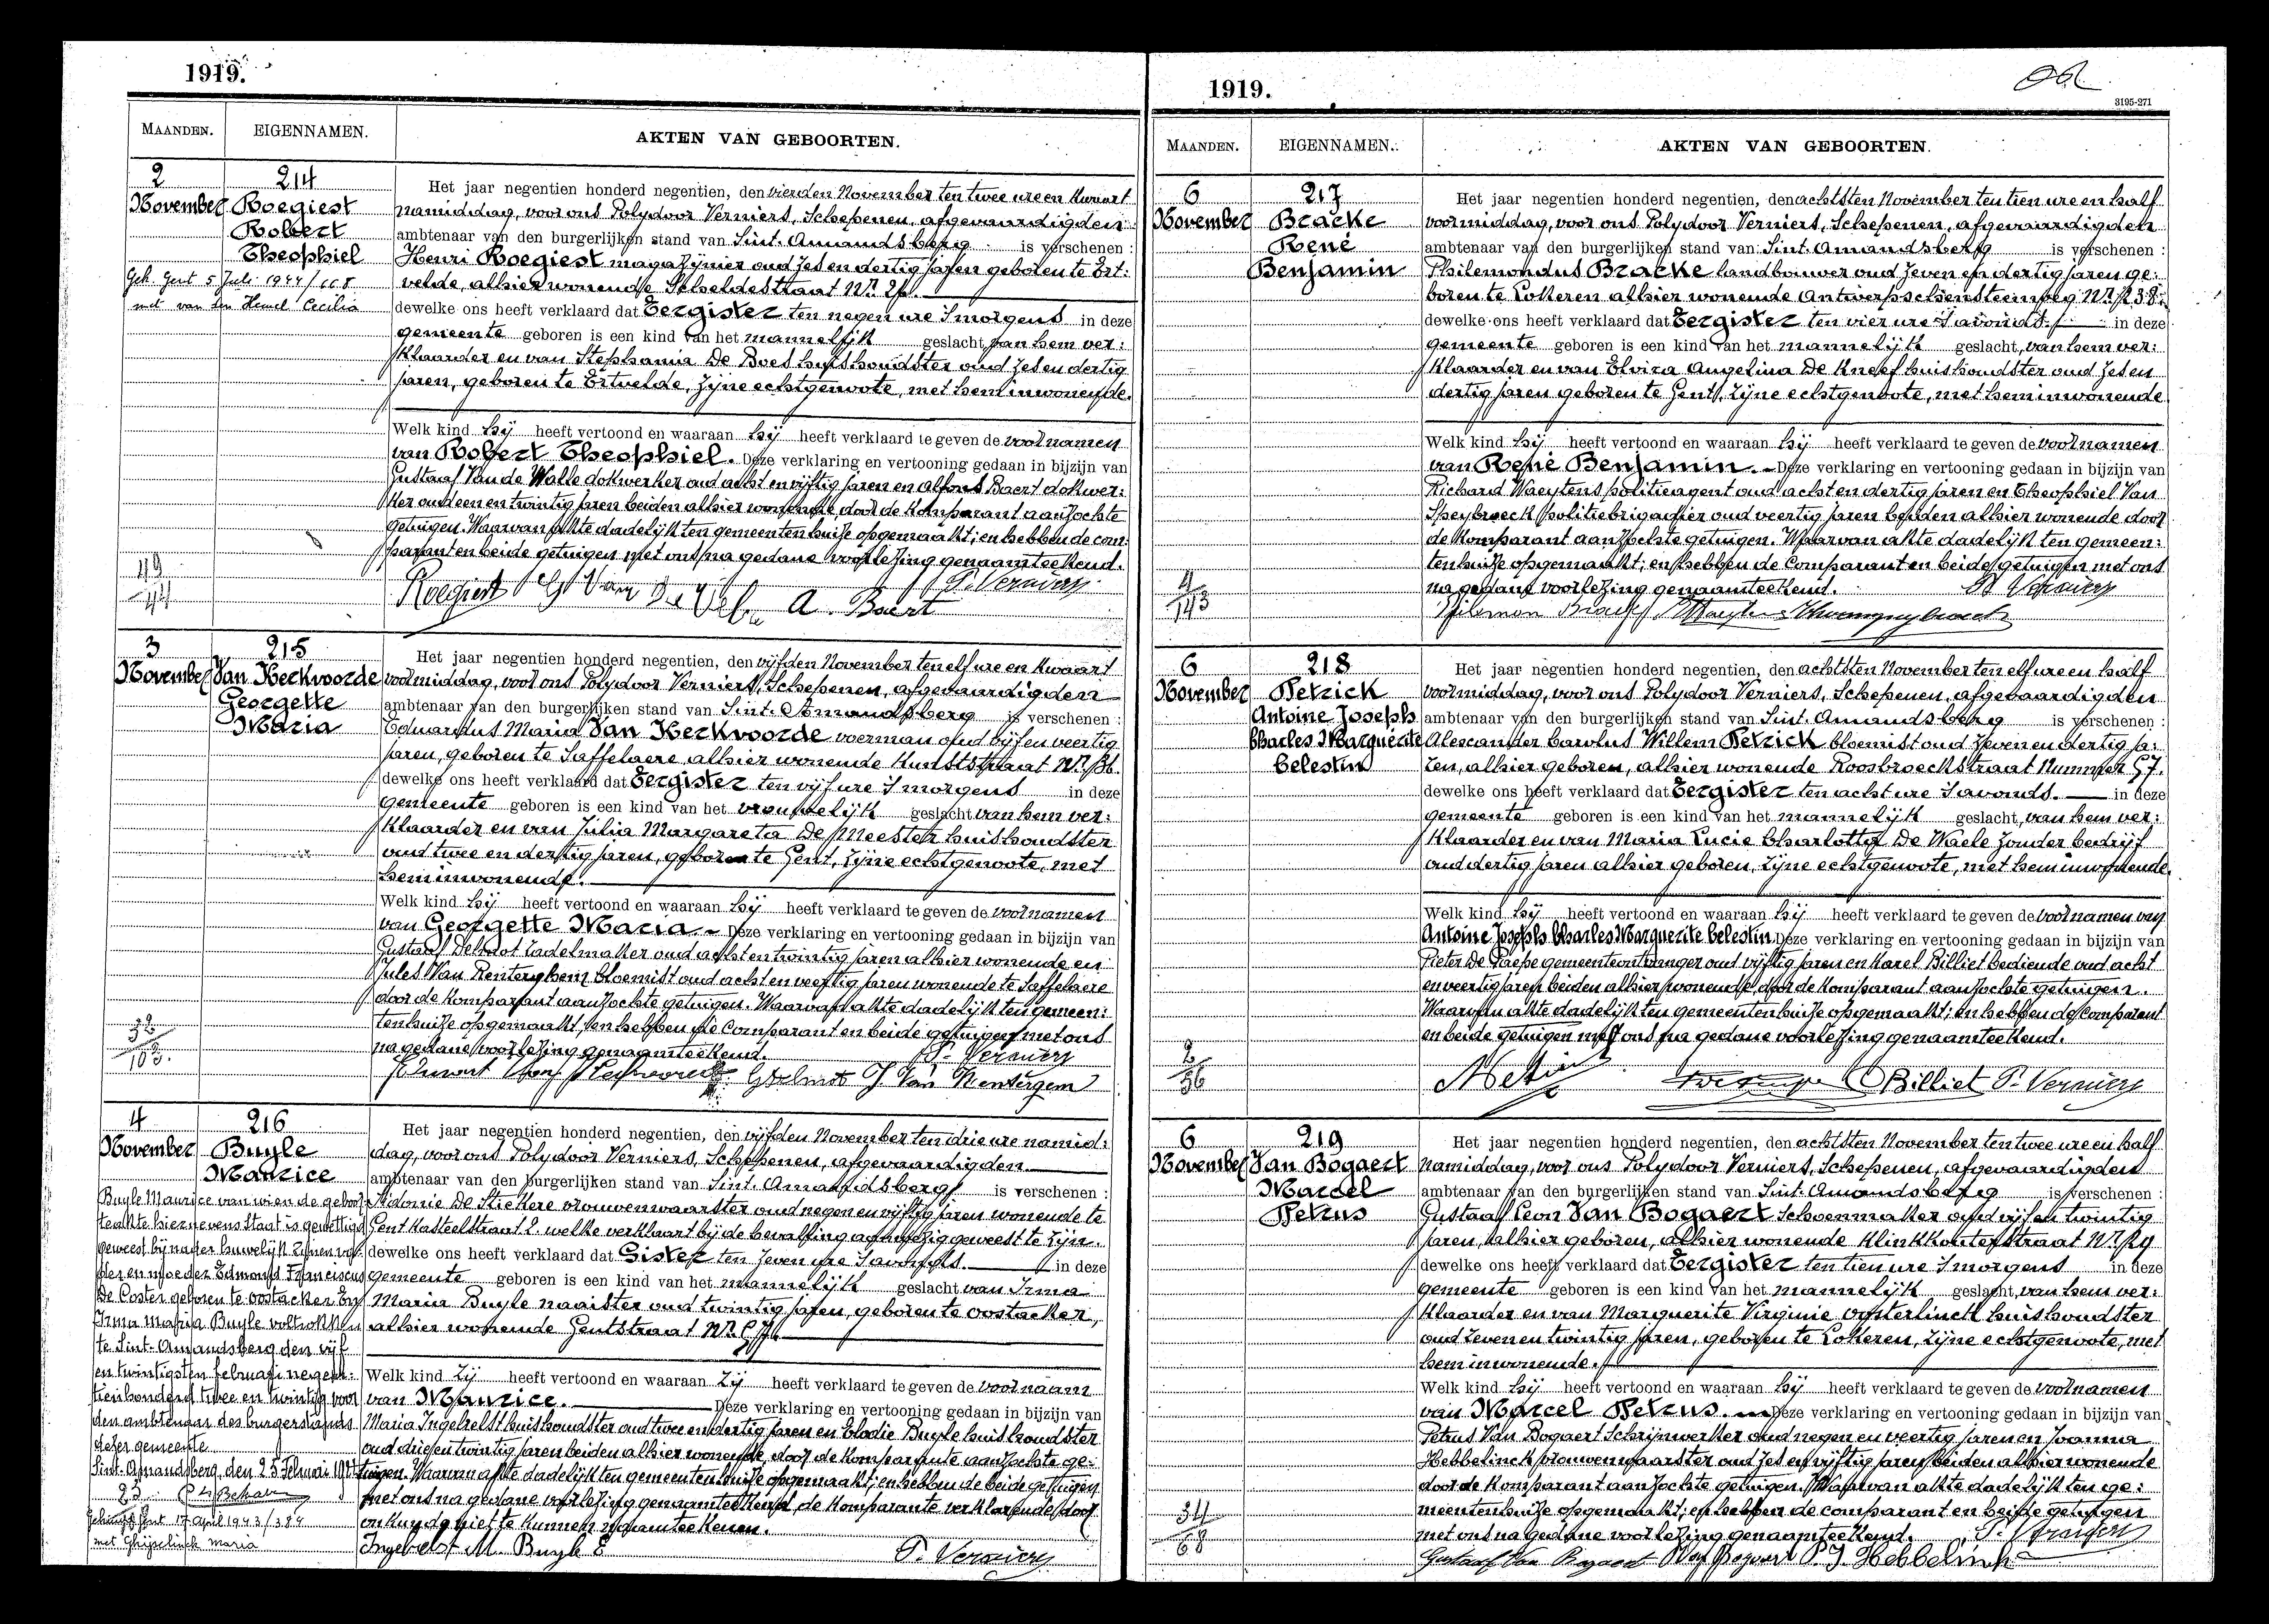 1919.
MAANDEN.
EIGENNAMEN.
AKTEN VAN GEBOORTEN.
2
November
214
Roegiest
Robert
Theophiel
Geh. Gent 5 Juli 1944/668
met van den Hemel Cecilia
Het jaar negentien honderd negentien, den vierden November ten twee ure en kwart
namiddag, voor ons Polydoor Verniers, Schepenen, afgevaardigden
ambtenaar van den burgerlijken stand van Sint. Amandsberg is verschenen :
Henri Roegiest magazijnier oud zes en dertig jaren geboren te Ert:
velde, alhier wonende Scheldestraat Nr.
dewelke ons heeft verklaard dat Eergister ten negen ure 's morgens in deze
gemeente geboren is een kind van het mannelijk geslacht, van hem ver:
klaarder en van Stephania De Boes huishoudster oud zes en dertig
jaren, geboren te Ertvelde, zijne echtgenoote, met hem inwonende.
Welk kind hij heeft vertoond en waaraan hij heeft verklaard te geven de voornamen
van Robert Theophiel. Deze verklaring en vertooning gedaan in bijzijn van
Gustaaf Van de Walle dokwerker oud acht en vijftig jaren en Alfons Baert dokwer:
ker oud een en twintig jaren beiden alhier wonende, door de komparant aanzochte
getuigen. Waarvan akte dadelijk ten gemeentenhuize opgemaakt; en hebben de com:
parant en beide getuigen met ons na gedane voorlezing genaamteekend.
Roegiest G Van De Walle A. Baert P. Verniers
3
November
215
Van Kerkvoorde
Georgette
Maria
Het jaar negentien honderd negentien, den vijfden November ten elf ure en kwaart
voormiddag, voor ons Polydoor Verniers, Schepenen, afgevaardigden
ambtenaar van den burgerlijken stand van Sint. Amandsberg is verschenen :
Eduardus Maria Van Kerkvoorde voerman oud vijf en veertig
jaren, geboren te Saffelaere, alhier wonende Kunststraat Nr.
dewelke ons heeft verklaard dat Eergister ten vijf ure 's morgens in deze
gemeente geboren is een kind van het vrouwelijk geslacht van hem ver:
klaarder en van Julia Margareta De Meester huishoudster
oud twee en dertig jaren, geboren te Gent, zijne echtgenoote, met
hem inwonende.
Welk kind hij heeft vertoond en waaraan hij heeft verklaard te geven de voornamen
van Georgette Maria Deze verklaring en vertooning gedaan in bijzijn van
Gustaaf zadelmaker oud acht en twintig jaren alhier wonende en
Jules Van Renterghem bloemist oud acht en veertig jaren wonende te Saffelaere
door de komparant aanzochte getuigen. Waarvan akte dadelijk ten gemeen:
tenhuize opgemaakt; en hebben de comparant en beide getuigen met ons
na gedane voorlezing genaamteekend. P. Verniers
J Van Rentergem
4
November
216
Buyle
Maurice
Buyle Maurice van wien de geboor
teakte hiernevens staat is gewettigd
geweest bij nader huwelijk zijnen va
der en moeder Edmond Franciscus
De Coster geboren te Oostacker En
Irma Maria Buyle voltrokken
te Sint-Amandsberg den vijf
en twintigsten februari negen:
tienhonderd twee en twintig voor
den ambtenaar des burgerstands
dezer gemeente
Sint-Amandsberg, den 25 februari
Gehuwd Gent 17 april 1943/384
met Ghijselinck Maria
Het jaar negentien honderd negentien, den vijfden November ten drie ure namid:
dag, voor ons Polydoor Verniers, Schepenen, afgevaardigden
ambtenaar van den burgerlijken stand van Sint. Amandsberg is verschenen :
Sidonie De Stickere vrouwenwaarster oud negen en vijftig jaren wonende te
Gent Kasteelstraat 2. welke verklaart bij de bevalling aanwezig geweest te zijn.
dewelke ons heeft verklaard dat Gister ten zeven ure 's avonds. in deze
gemeente geboren is een kind van het mannelijk geslacht van Irma
Maria Buyle naaister oud twintig jaren, geboren te Oostacker,
alhier wonende Gentstraat Nr.
Welk kind zij heeft vertoond en waaraan zij heeft verklaard te geven de voornaam
van Maurice. Deze verklaring en vertooning gedaan in bijzijn van
Maria Ingelrelst huishoudster oud twee en dertig jaren en Elodie Buyle huishoudster
oud drie en twintig jaren beiden alhier wonende, door de komparante aanzochte ge:
tuigen. Waarvan akte dadelijk ten gemeentenhuize opgemaakt; en hebben de beide getuigen
met ons na gedane voorlezing genaamteekend, de komparante verklarende door
onkunde niet te kunnen naamteekenen.
M. Buyle E P. Verniers
1919.
3195-271
MAANDEN.
EIGENNAMEN.
AKTEN VAN GEBOORTEN.
6
November
217
Bracke
René
Benjamin
4
143
Het jaar negentien honderd negentien, den achtsten November ten tien ure en half
voormiddag, voor ons Polydoor Verniers, Schepenen, afgevaardigden
ambtenaar van den burgerlijken stand van Sint. Amandsberg is verschenen :
Philemondus Bracke landbouwer oud zeven en dertig jaren ge:
boren te Lokeren alhier wonende Antwerpschensteenweg Nr.
dewelke ons heeft verklaard dat Eergister ten vier ure 's avonds. in deze
gemeente geboren is een kind van het mannelijk geslacht, van hem ver:
klaarder en van Elvira Angelina De Kneef huishoudster oud zes en
dertig jaren geboren te Gent, zijne echtgenoote, met hem inwonende
Welk kind hij heeft vertoond en waaraan hij heeft verklaard te geven de voornamen
van René Benjamin. Deze verklaring en vertooning gedaan in bijzijn van
Richard Waeytens politieagent oud acht en dertig jaren en Theophiel Van
Speybroeck politiebrigadier oud veertig jaren beiden alhier wonende door
de komparant aanzochte getuigen. Waarvan akte dadelijk ten gemeen:
tenhuize opgemaakt; en hebben de comparant en beide getuigen met ons
na gedane voorlezing genaamteekend. P Verniers
6
November
218
Petrick
Antoine Joseph
Charles Marguerite
Celestin
2
36
Het jaar negentien honderd negentien, den achtsten November ten elf ure en half
voormiddag, voor ons Polydoor Verniers, Schepenen, afgevaardigden
ambtenaar van den burgerlijken stand van Sint. Amandsberg is verschenen :
Alexander Carolus Willem Petrick bloemist oud zeven en dertig ja:
ren, alhier geboren, alhier wonende Roosbroeckstraat Nummer 57.
dewelke ons heeft verklaard dat Eergister ten acht ure 's avonds. in deze
gemeente geboren is een kind van het mannelijk geslacht, van hem ver:
klaarder en van Maria Lucie Charlotte De Waele zonder bedrijf
oud dertig jaren alhier geboren, zijne echtgenoote, met hem inwonende.
Welk kind hij heeft vertoond en waaraan hij heeft verklaard te geven de voornamen van
Antoine Joseph Charles Marguerite Celestin. Deze verklaring en vertooning gedaan in bijzijn van
Pieter De Paepe gemeenteontvanger oud vijftig jaren en Karel Billiet bediende oud acht
en veertig jaren beiden alhier wonende door de komparant aanzochte getuigen.
Waarvan akte dadelijk ten gemeentenhuize opgemaakt; en hebben de comparant
en beide getuigen met ons na gedane voorlezing genaamteekend.
Billiet P. Verniers
6
November
219
Van Bogaert
Marcel
Petrus
34
68
Het jaar negentien honderd negentien, den achtsten November ten twee ure en half
namiddag, voor ons Polydoor Verniers, Schepenen, afgevaardigden
ambtenaar van den burgerlijken stand van Sint. Amandsberg is verschenen :
Gustaaf Leon Van Bogaert schoenmaker oud vijf en twintig
jaren, alhier geboren, alhier wonende Klinkkouterstraat Nr.
dewelke ons heeft verklaard dat Eergister ten tien ure 's morgens in deze
gemeente geboren is een kind van het mannelijk geslacht, van hem ver:
klaarder en van Marguerite Virginie Oosterlinck huishoudster
oud zeven en twintig jaren, geboren te Lokeren, zijne echtgenoote, met
hem inwonende.
Welk kind hij heeft vertoond en waaraan hij heeft verklaard te geven de voornamen
van Marcel Petrus. Deze verklaring en vertooning gedaan in bijzijn van
Petrus Van Bogaert schrijnwerker oud negen en veertig jaren en Joanna
Hebbelinck vrouwenwaarster oud zes en vijftig jaren beiden alhier wonende
door de komparant aanzochte getuigen. Waarvan akte dadelijk ten ge:
meentenhuize opgemaakt; en hebben de comparant en beide getuigen
met ons na gedane voorlezing genaamteekend. P. Verniers
Gustaaf Van Bogaert P Van Bogaert P. J. Hebbelinck